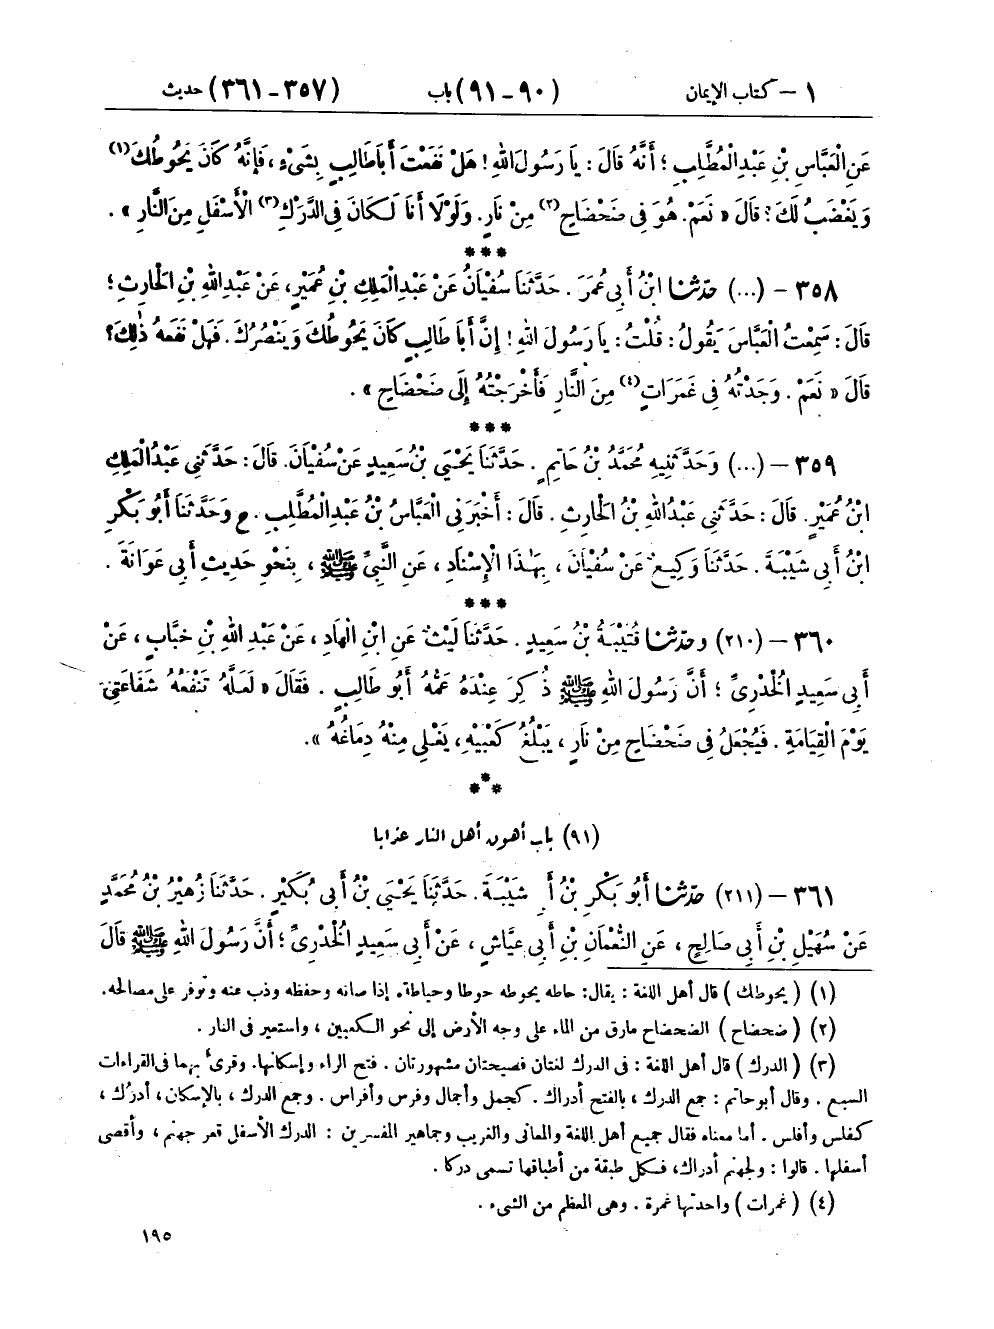 ١ – كتاب الإيمان (٩٠ – ٩١) باب (٣٥٧ – ٣٦١) حديث
عَنِ الْعَبَّاسِ بْنِ عَبْدِالْمُطَّلِبِ ؛ أَنَّهُ قَالَ : يَا رَسُولَ اللهِ ! هَلْ نَفَعْتَ أَبَا طَالِبٍ بِشَيْءٍ ، فَإِنَّهُ كَانَ يَحُوطُكَ (١)
وَيَغْضَبُ لَكَ ؟ قَالَ « نَعَمْ . هُوَ فِى ضَحْضَاحٍ (٢) مِنْ نَارٍ . وَلَوْلَا أَنَا لَكَانَ فِى الدَّرَكِ (٣) الْأَسْفَلِ مِنَ النَّارِ » .
***
٣٥٨ – (...) حَدَّثَنَا ابْنُ أَبِى عُمَرَ . حَدَّثَنَا سُفْيَانُ عَنْ عَبْدِ الْمَلِكِ بْنِ عُمَيْرٍ ، عَنْ عَبْدِ اللهِ بْنِ الْحَارِثِ ؛
قَالَ : سَمِعْتُ الْعَبَّاسَ يَقُولُ : قُلْتُ : يَا رَسُولَ اللهِ ! إِنَّ أَبَا طَالِبٍ كَانَ يَحُوطُكَ وَيَنْصُرُكَ . فَهَلْ نَفَعَهُ ذٰلِكَ ؟
قَالَ « نَعَمْ . وَجَدْتُهُ فِى غَمَرَاتٍ (٤) مِنَ النَّارِ فَأَخْرَجْتُهُ إِلَى ضَحْضَاحٍ » .
***
٣٥٩ – (...) وَحَدَّثَنِيهِ مُحَمَّدُ بْنُ حَاتِمٍ . حَدَّثَنَا يَحْيَى بْنُ سَعِيدٍ عَنْ سُفْيَانَ . قَالَ : حَدَّثَنِى عَبْدُ الْمَلِكِ
ابْنُ عُمَيْرٍ . قَالَ : حَدَّثَنِى عَبْدُ اللهِ بْنُ الْحَارِثِ . قَالَ : أَخْبَرَنِى الْعَبَّاسُ بْنُ عَبْدِ الْمُطَّلِبِ . ح وَحَدَّثَنَا أَبُو بَكْرِ
ابْنُ أَبِى شَيْبَةَ . حَدَّثَنَا وَكِيعٌ عَنْ سُفْيَانَ ، بِهٰذَا الْإِسْنَادِ ، عَنِ النَّبِىِّ ﷺ ، بِنَحْوِ حَدِيثِ أَبِى عَوَانَةَ .
***
٣٦٠ – (٢١٠) وحَدَّثَنَا قُتَيْبَةُ بْنُ سَعِيدٍ . حَدَّثَنَا لَيْثٌ عَنِ ابْنِ الْهَادِ ، عَنْ عَبْدِ اللهِ بْنِ خَبَّابٍ ، عَنْ
أَبِى سَعِيدٍ الْخُدْرِىِّ ؛ أَنَّ رَسُولَ اللهِ ﷺ ذُكِرَ عِنْدَهُ عَمُّهُ أَبُو طَالِبٍ . فَقَالَ « لَعَلَّهُ تَنْفَعُهُ شَفَاعَتِى
يَوْمَ الْقِيَامَةِ . فَيُجْعَلُ فِى ضَحْضَاحٍ مِنْ نَارٍ ، يَبْلُغُ كَعْبَيْهِ ، يَغْلِى مِنْهُ دِمَاغُهُ » .
***
(٩١) باب أهون أهل النار عذابا
٣٦١ – (٢١١) حَدَّثَنَا أَبُو بَكْرِ بْنُ أَبِى شَيْبَةَ . حَدَّثَنَا يَحْيَى بْنُ أَبِى بُكَيْرٍ . حَدَّثَنَا زُهَيْرُ بْنُ مُحَمَّدٍ
عَنْ سُهَيْلِ بْنِ أَبِى صَالِحٍ ، عَنِ النُّعْمَانِ بْنِ أَبِى عَيَّاشٍ ، عَنْ أَبِى سَعِيدٍ الْخُدْرِىِّ ؛ أَنَّ رَسُولَ اللهِ ﷺ قَالَ
(١) ( يحوطك ) قال أهل اللغة : يقال : حاطه يحوطه حوطا وحياطة . إذا صانه وحفظه وذب عنه وتوفر على مصالحه .
(٢) ( ضحضاح ) الضحضاح مارق من الماء على وجه الأرض إلى نحو الكعبين ، واستعير فى النار .
(٣) ( الدرك ) قال أهل اللغة : فى الدرك لغتان فصيحتان مشهورتان . فتح الراء وإسكانها . وقرئ بهما فى القراءات
السبع . وقال أبو حاتم : جمع الدرك ، بالفتح أدراك . كجمل وأجمال وفرس وأفراس . وجمع الدرك ، بالإسكان ، أدرُك ،
كفلس وأفلس . أما معناه فقال جميع أهل اللغة والمعانى والغريب وجماهير المفسرين : الدرك الأسفل قعر جهنم ، وأقصى
أسفلها . قالوا : ولجهنم أدراك ، فكل طبقة من أطباقها تسمى دركا .
(٤) ( غمرات ) واحدتها غمرة . وهى المعظم من الشىء .
١٩٥